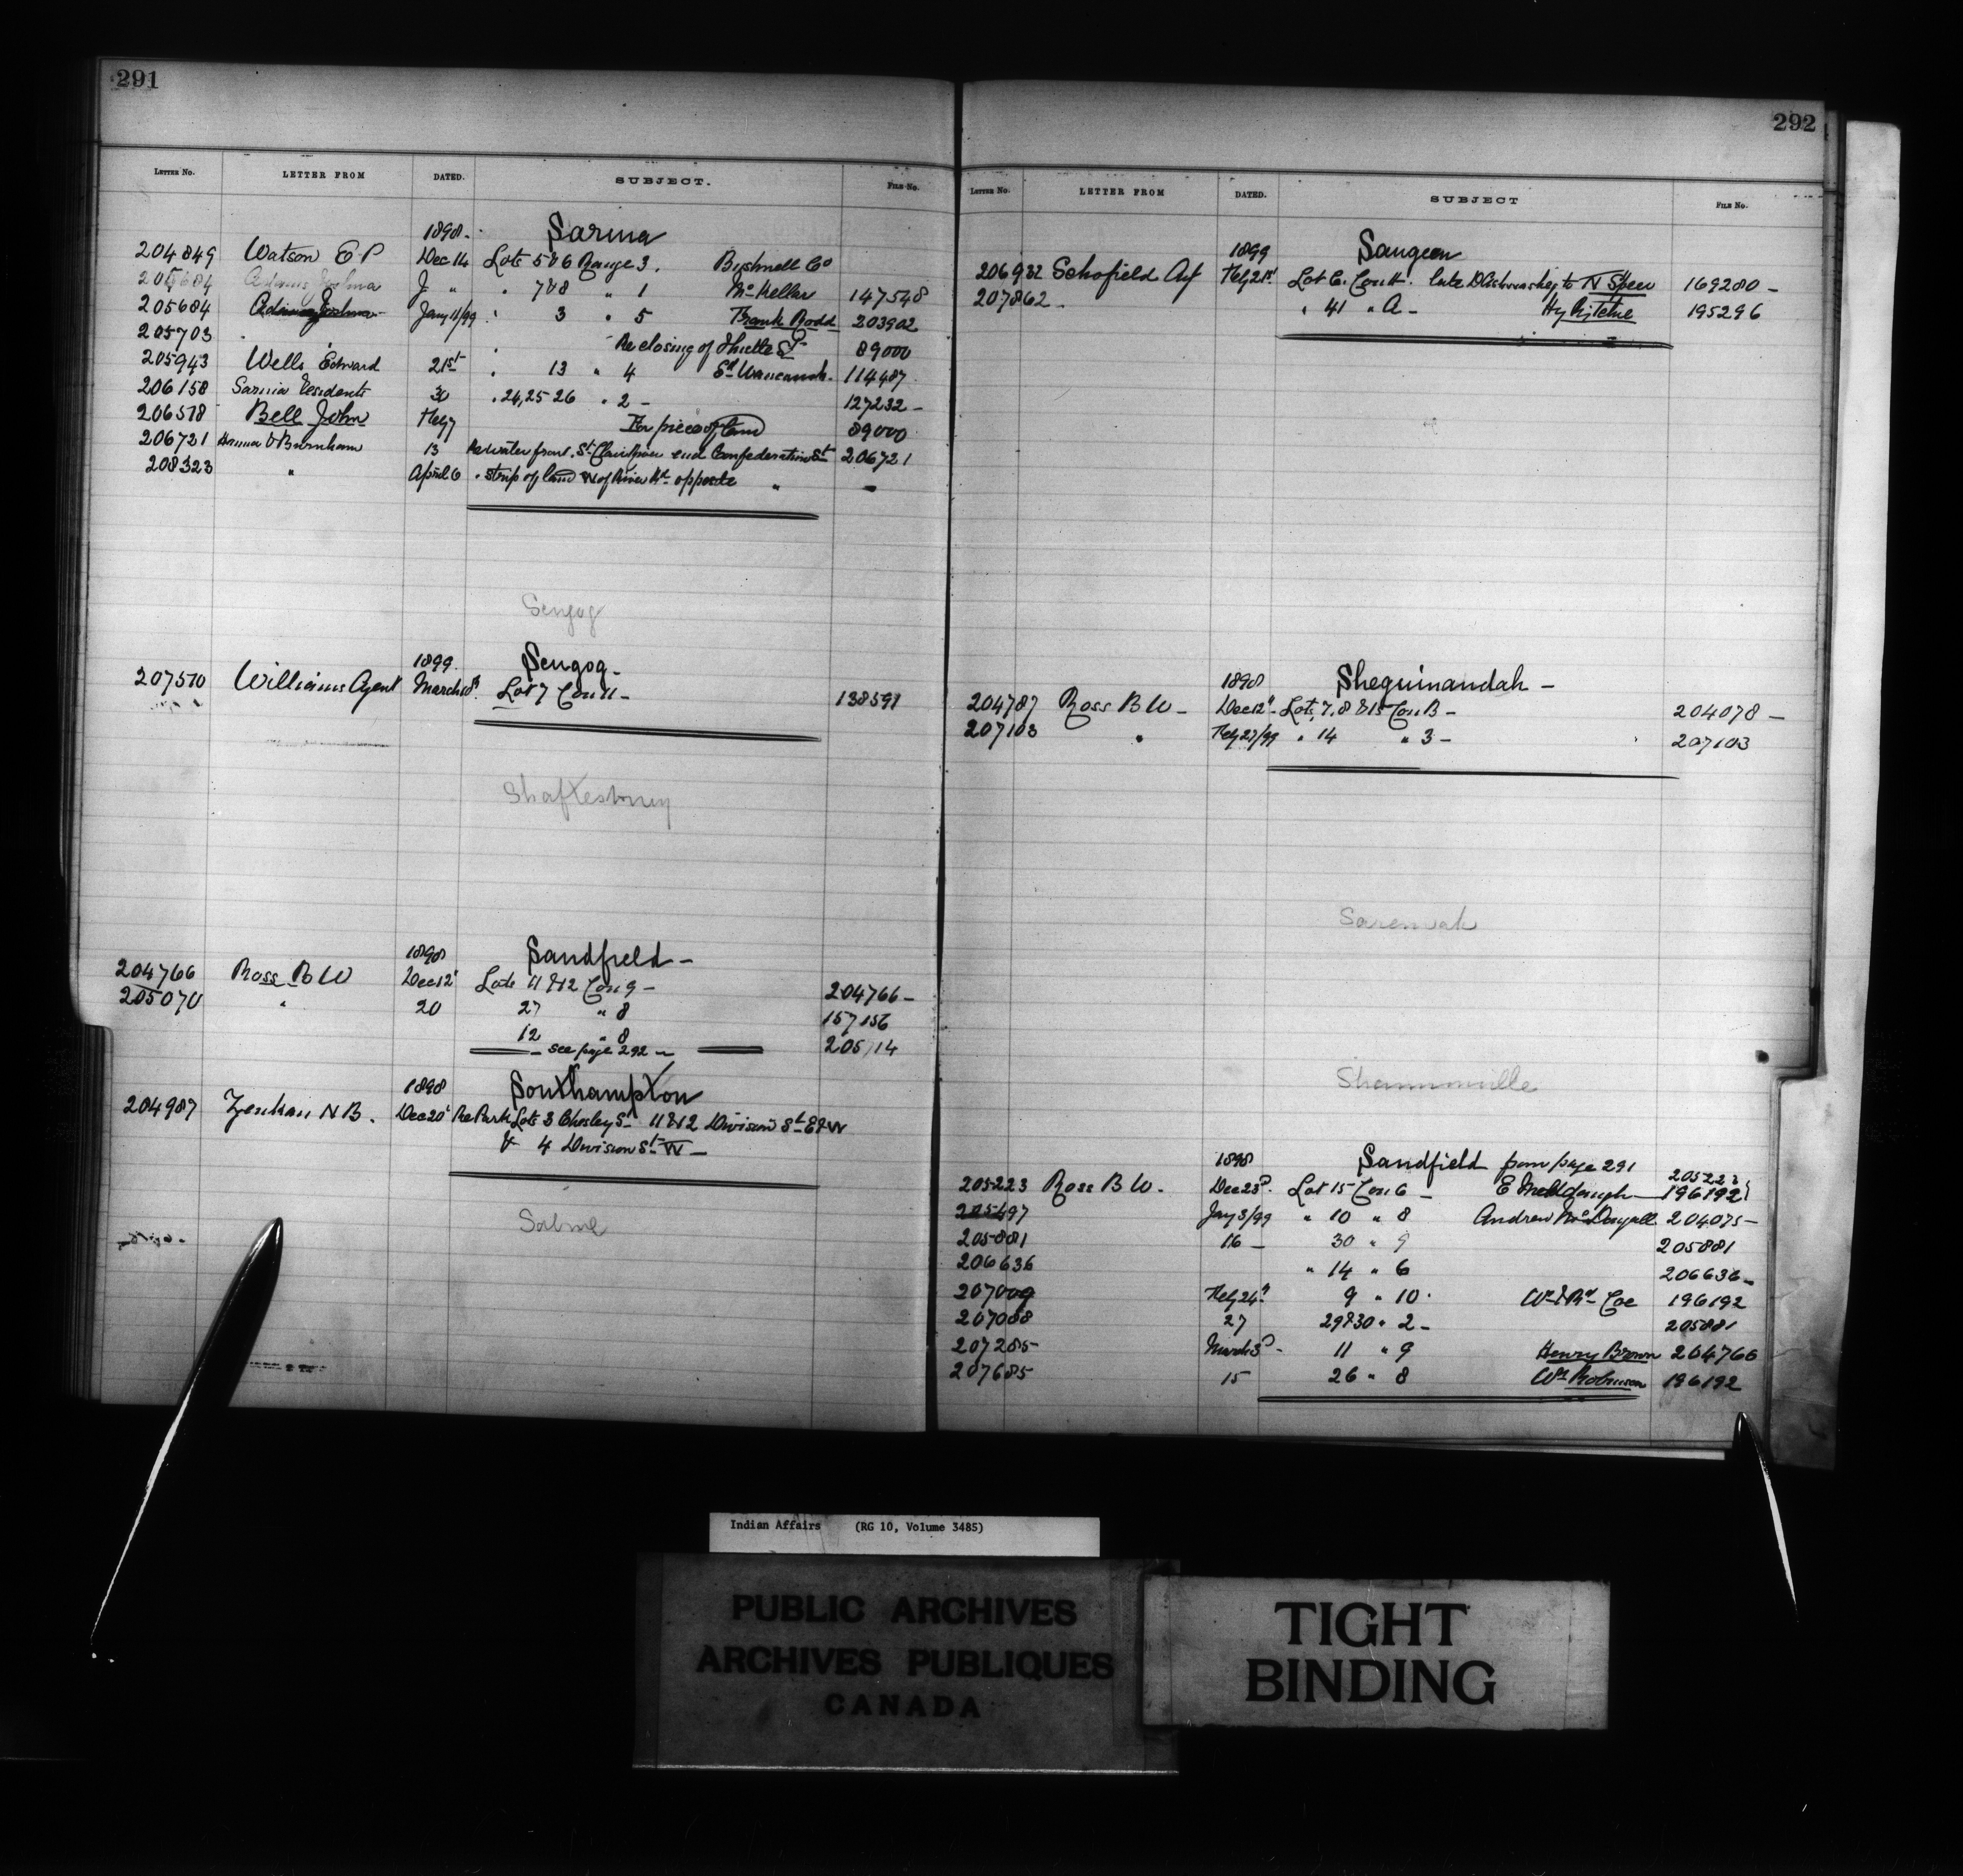 291
LETTER NO. LETTER FROM DATED. SUBJECT. FILE NO.
1898 - Sarnia
204849 Watson E. P Dec 14 Lots 5 & 6 Range 3. Bushnell Co
205684 Adams Joshua J " " 7 & 8 " 1 McKellar 147548
205684 Adams Joshua Jany 11/99 " 3 " 5 Frank Rodd 203902
205703 " Re closing of St 89000
205943 Wells Edward 21st " 13 " 4 114487
206158 Sarnia Residents 30 " 24, 25 26 " 2 - 127232 -
206518 Bell John Feby 7 For piece of land 89000
206721 Hanna & Burnham 13 Re water front. St Clair River end Confederation St 206721
208323 " April 6 " strip of land W of River Rd opposite " -
Scugog
1899 Scugog -
207510 Williams Agent March 18th Lot 7 Con 11 - 138591
Shaftesbury
1898 Sandfield -
204766 Ross B W Dec 12th Lots 11 & 12 Con 9 - 204766 -
205070 " 20 27 " 8 157156
12 " 8 205714
- see page 292 -
1898 Southampton
204987 Zenkan N B. Dec 20th Re Park Lots 3 Chesley St 11 & 12 Division St E & W
& 4 Division St W -
Sabine
292
LETTER NO. LETTER FROM DATED. SUBJECT FILE NO.
1899 Saugeen
206932 Schofield Agt Feby 21st Lot C. Con 11. late to N Steer 169280 -
207862 - " 41 " A - Hy Ritchie 195296
1898 Sheguinandah -
204787 Ross B W - Dec 12th - Lots 7, 8 & 15 Con B - 204078 -
207103 " Feby 27/99 " 14 " 3 - 207103
Sarawak
Shannonville
1898 Sandfield from page 291
205223
205223 Ross B W. Dec 23d. Lot 15 Con 6 - E 196192
205497 Jany 3/99 " 10 " 8 Andrew McDougall 204075 -
205881 16 - 30 " 9 205881
206636 " 14 " 6 206636 -
207009 Feby 24th 9 " 10 " Wm & Rd Coe 196192
207088 27 29 & 30 " 2 - 205881
207285 March 3d - 11 " 9 Henry Brown 204766
207685 15 26 " 8 Wm Robinson 196192
Indian Affairs (RG 10, Volume 3485)
PUBLIC ARCHIVES
ARCHIVES PUBLIQUES
CANADA
TIGHT
BINDING